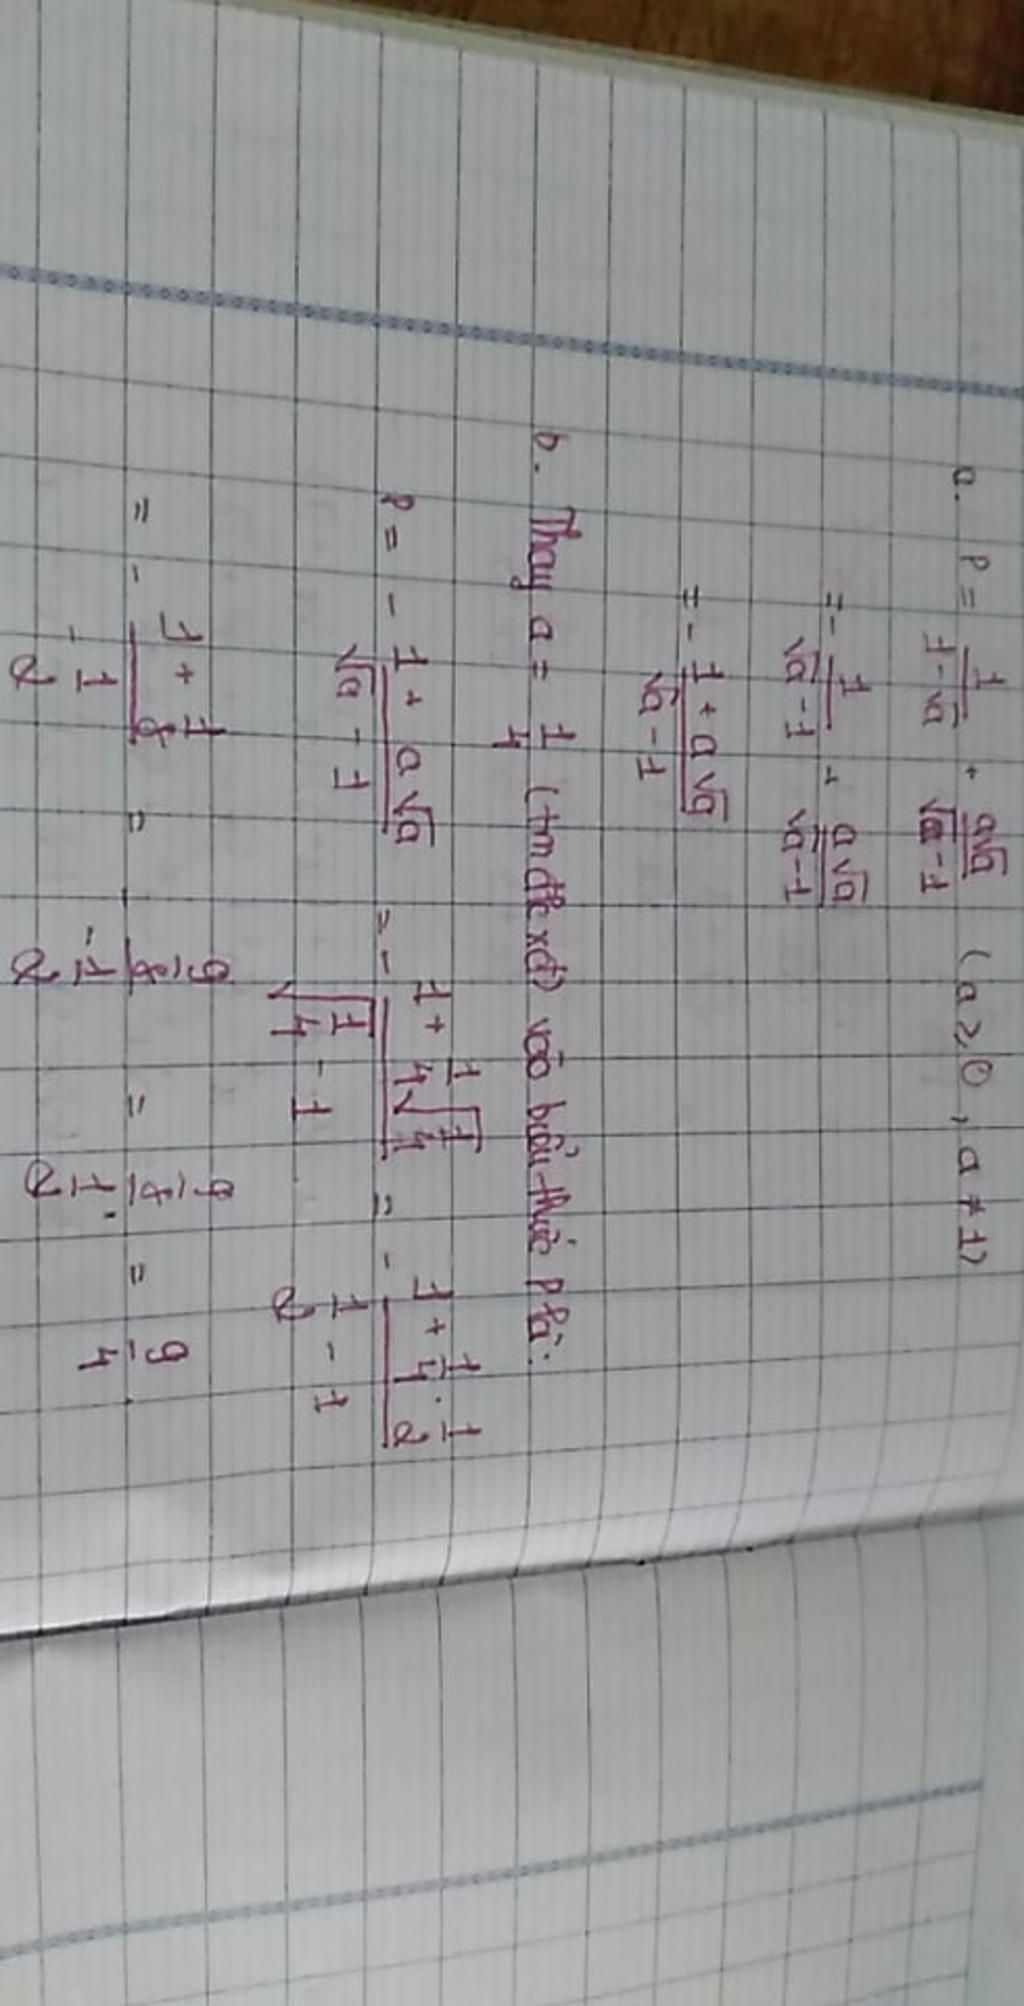 a. P = 1/(1-√a) + a√a/(√a-1) (a ≥ 0, a ≠ 1)
= - 1/(√a-1) + a√a/(√a-1)
= - (1+a√a)/(√a-1)
b. Thay a = 1/4 (tm đk xđ) vào biểu thức P ta:
P = - (1+a√a)/(√a-1) = - (1+1/4√(1/4))/(√(1/4)-1) = - (1+1/4·1/2)/(1/2-1)
= - (1+1/8)/(-1/2) = - (9/8)/(-1/2) = (9/8)/(1/2) = 9/4